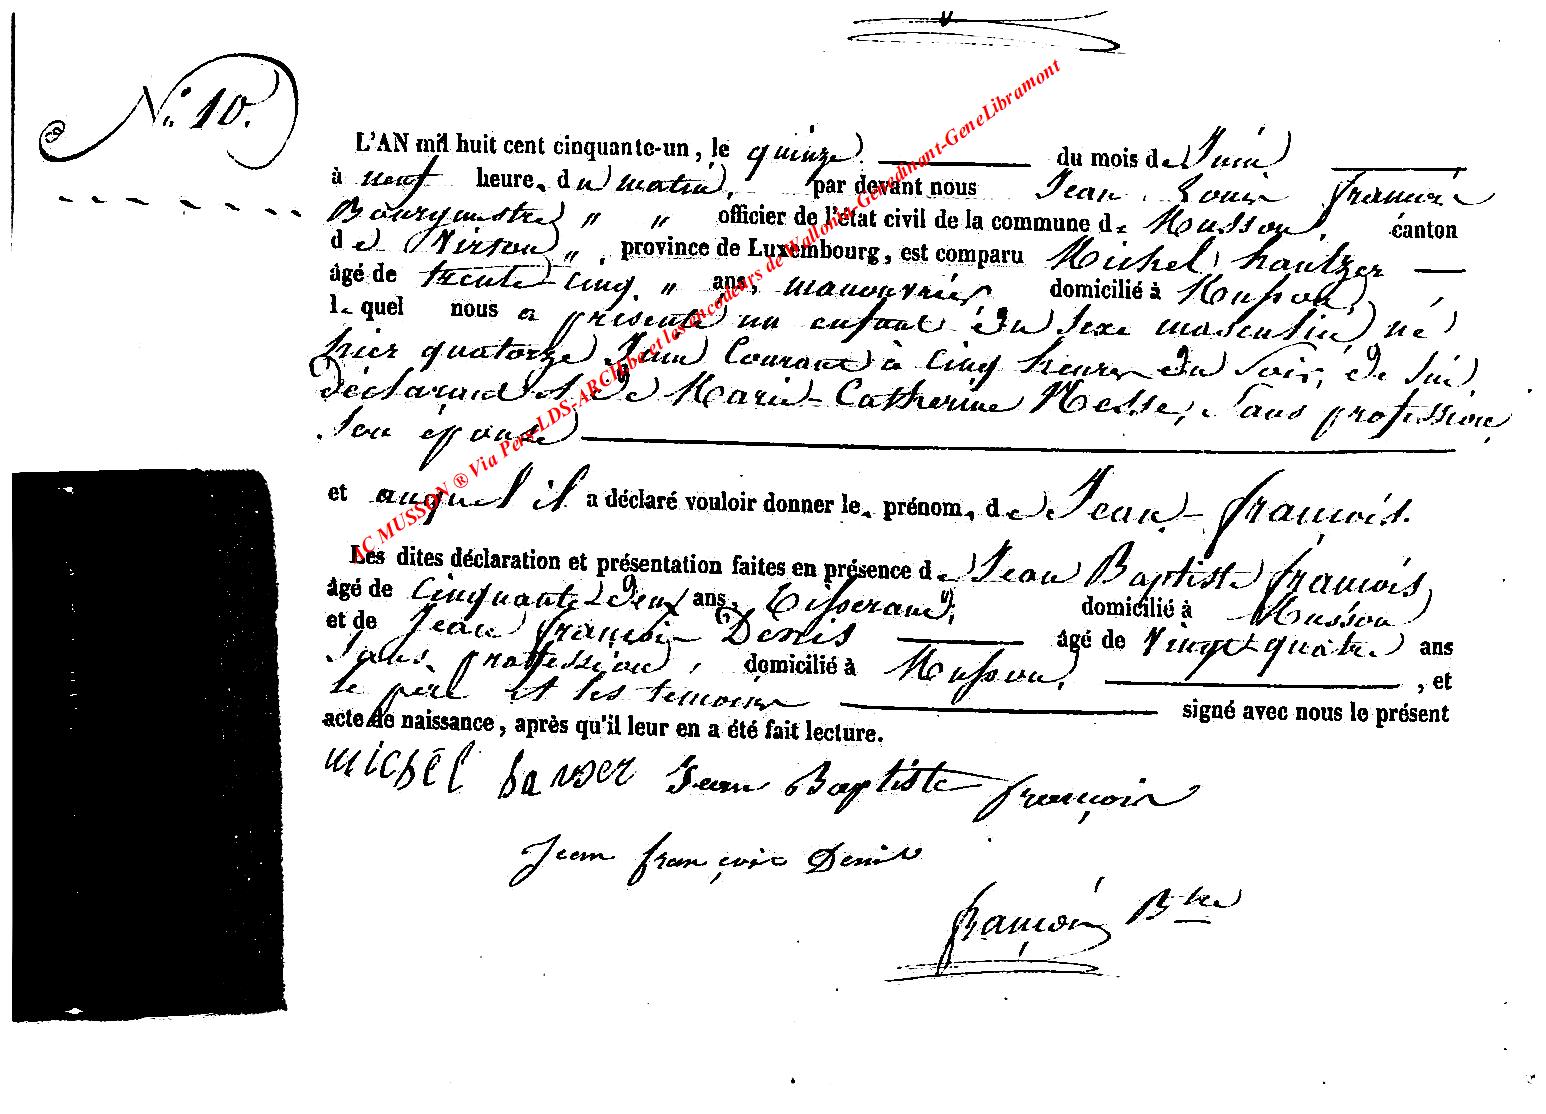 N.° 10.
L'AN mil huit cent cinquante-un, le quinze du mois de Juin
à neuf heure, du matin, par devant nous Jean Louis françois
Bourgmestre " " officier de l'état civil de la commune de Musson, canton
de Virton " , province de Luxembourg, est comparu Michel hautzer
âgé de trente-cinq " ans, manouvrier domicilié à Musson,
lequel nous a présenté un enfant du sexe masculin né
hier quatorze Juin Courant à Cinq heures du Soir, de lui
déclarant et de Marie-Catherine Messe, Sans profession
son épouse
et auquel il a déclaré vouloir donner le prénom, de Jean-françois.
Les dites déclaration et présentation faites en présence de Jean Baptiste françois
âgé de Cinquante-deux ans, Tisserand, domicilié à Musson
et de Jean françois Denis âgé de vingt-quatre ans
sans proffession, domicilié à Musson, , et
le père et les temoins signé avec nous le présent
acte de naissance, après qu'il leur en a été fait lecture.
michel hauser Jean Baptiste françois
Jean françois Denis
françois Btre
AC MUSSON ® Via Pera-LDS-ARCH.be et les encodeurs de Wallonia-Genedinant-GeneLibramont